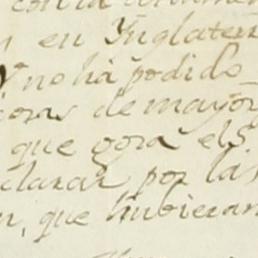 en Inglater
Y no há podido
cosas de mayor
que goza el S.
clarar por las
n, que hubieran